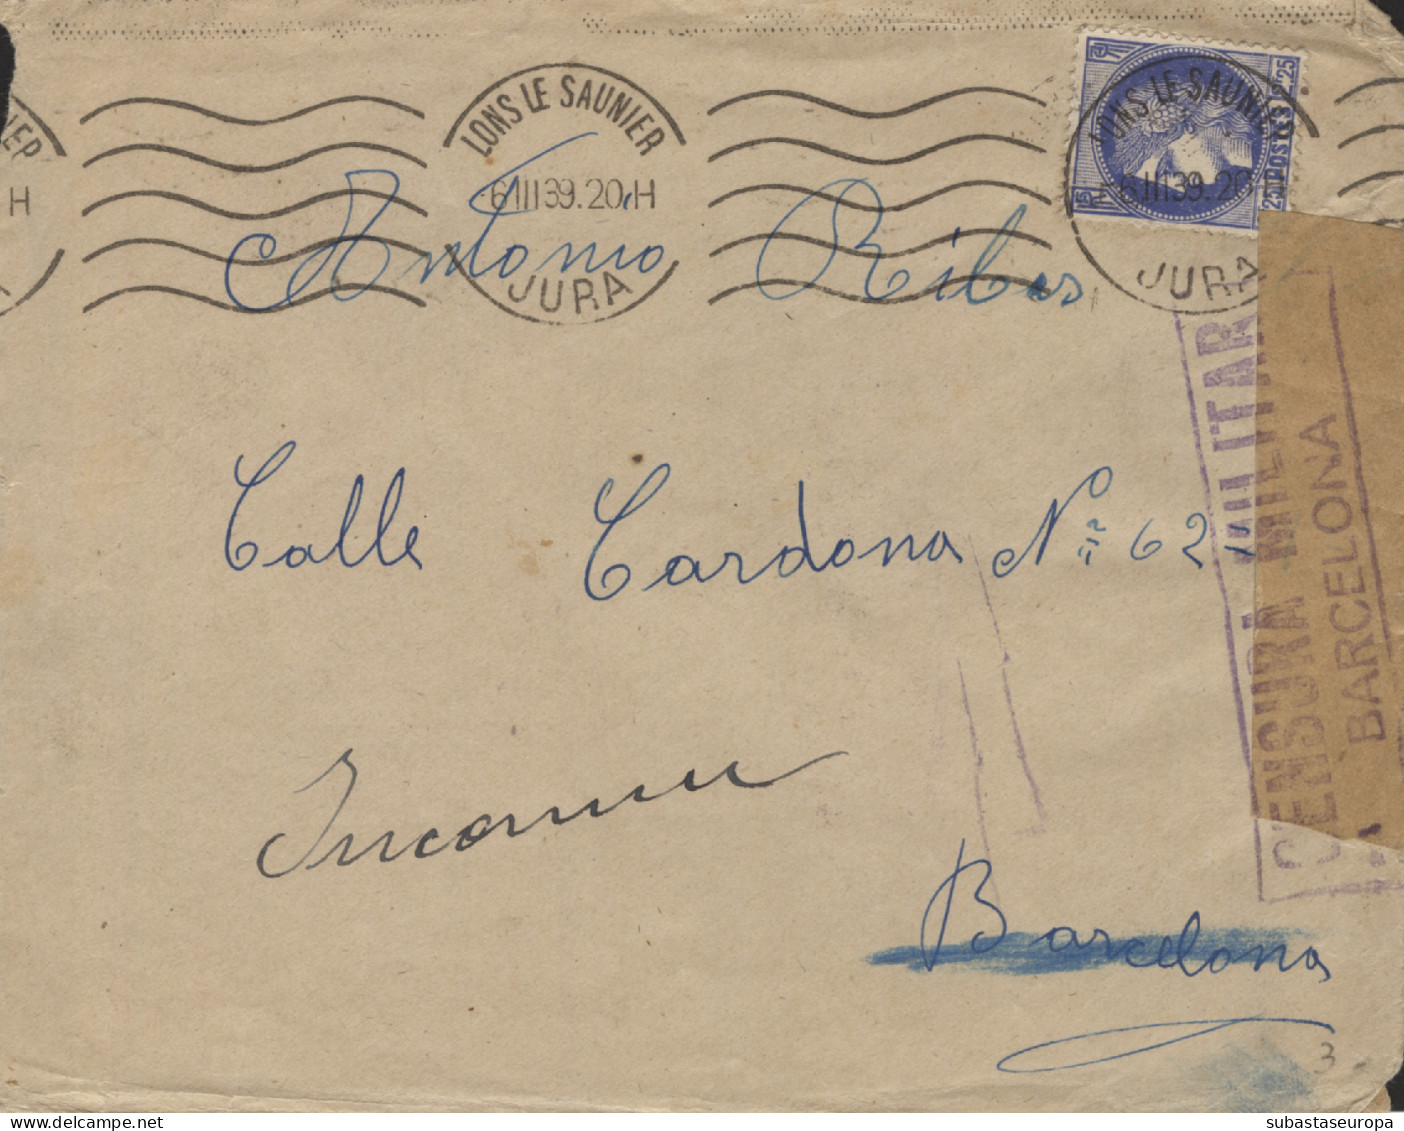 LONS LE SAUNIER
6 III 39. 20 H
JURA
LONS LE SAUNIER
6 III 39. 20
JURA
H
POSTES 2F25
Antonio Ribas
Calle Cardona Nº 62
CENSURA MILITAR
BARCELONA
Barcelona
3
subastaseuropa